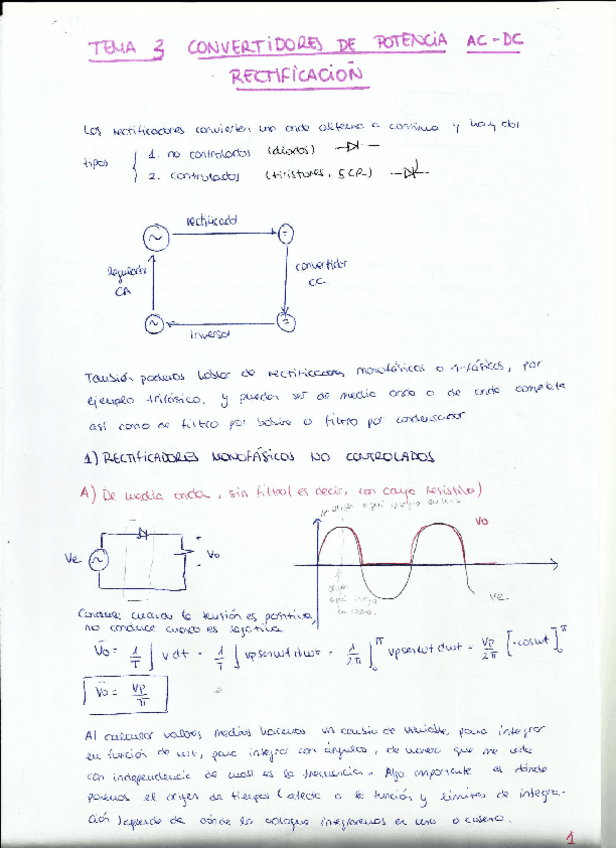 TEMA 3 CONVERTIDORES DE POTENCIA AC-DC
RECTIFICACIÓN
Los rectificadores convierten una onda alterna a continua y hay dos
tipos
1. no controlados (diodos)
2. controlados (tiristores, SCR)
rectificador
regulador
CA
convertidor
CC
inversor
También podemos hablar de rectificadores monofásicos o n-fásicos, por
ejemplo trifásico. y pueden ser de media onda o de onda completa
así como de filtro por bobina o filtro por condensador
1) RECTIFICADORES MONOFÁSICOS NO CONTROLADOS
A) De media onda, sin filtro (es decir, con carga resistiva)
Ve
Vo
Vo
Ve
Conduce cuando la tensión es positiva,
no conduce cuando es negativa
Vo = 1/T ∫ v dt = 1/T ∫ vp senwt dwt = 1/2π ∫₀^π vp senwt dwt = Vp/2π [-coswt]₀^π
Vo = Vp/π
Al calcular valores medios hacemos un cambio de variable, para integrar
en función de wt, para integrar con ángulos, de manera que me vale
con independencia de cual es la frecuencia. Algo importante es dónde
ponemos el origen de tiempos (afecta a la función y límites de integra-
ción) depende de dónde lo coloque integraremos en seno o coseno.
1